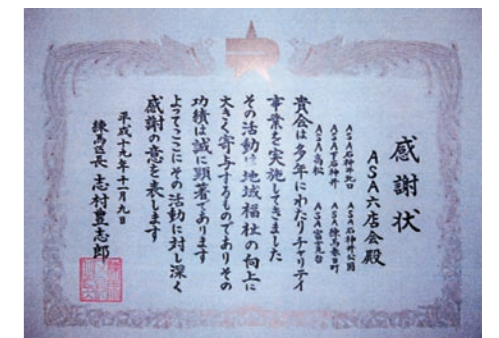 感謝状
ASA六店会殿
ASA石神井北口 ASA石神井公園
ASA下石神井 ASA練馬春日町
ASA高松 ASA富士見台
貴会は多年にわたりチャリテイ
事業を実施してきました
その活動は地域福祉の向上に
大きく寄与するものでありその
功績は誠に顕著であります
よってここにその活動に対し深く
感謝の意を表します
平成十九年十一月九日
練馬区長 志村豊志郎